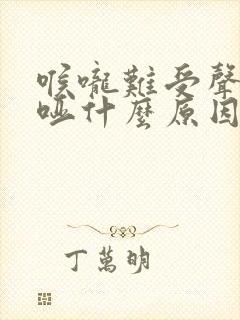 喉嚨難受聲
啞什麼原因
丁萬明